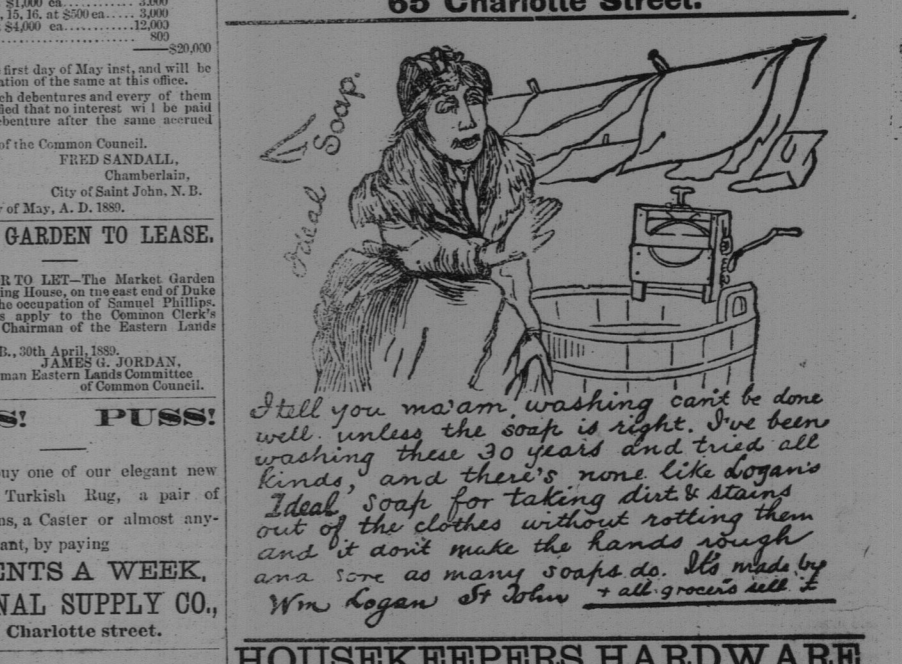 $1,000 ea........... 3.000
15, 16. at $500 ea..... 3,000
$4,000 ea............12,000
800
$20,000
first day of May inst, and will be
ation of the same at this office.
ch debentures and every of them
fied that no interest wi l be paid
ebenture after the same accrued
of the Common Council.
FRED SANDALL,
Chamberlain,
City of Saint John, N. B.
of May, A. D. 1889.
GARDEN TO LEASE.
R TO LET—The Market Garden
ing House, on the east end of Duke
he occupation of Samuel Phillips.
s apply to the Common Clerk's
Chairman of the Eastern Lands
B., 30th April, 1889.
JAMES G. JORDAN,
man Eastern Lands Committee
of Common Council.
S! PUSS!
uy one of our elegant new
Turkish Rug, a pair of
ns, a Caster or almost any-
ant, by paying
ENTS A WEEK,
NAL SUPPLY CO.,
Charlotte street.
65 Charlotte Street.
Ideal Soap.
I tell you ma'am, washing can't be done
well unless the soap is right. I've been
washing these 30 years and tried all
kinds, and there's none like Logan's
Ideal Soap for taking dirt & stains
out of the clothes without rotting them
and it don't make the hands rough
and sore as many soaps do. It's made by
Wm Logan St John + all grocers sell it
HOUSEKEEPERS HARDWARE